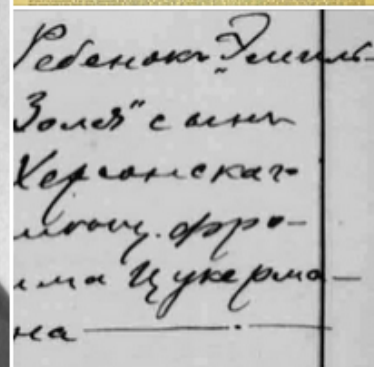 Ребенокъ „Эмиль-
Золя" сынъ
Херсонскаго
мѣщ. Фро-
има Цукерма-
на